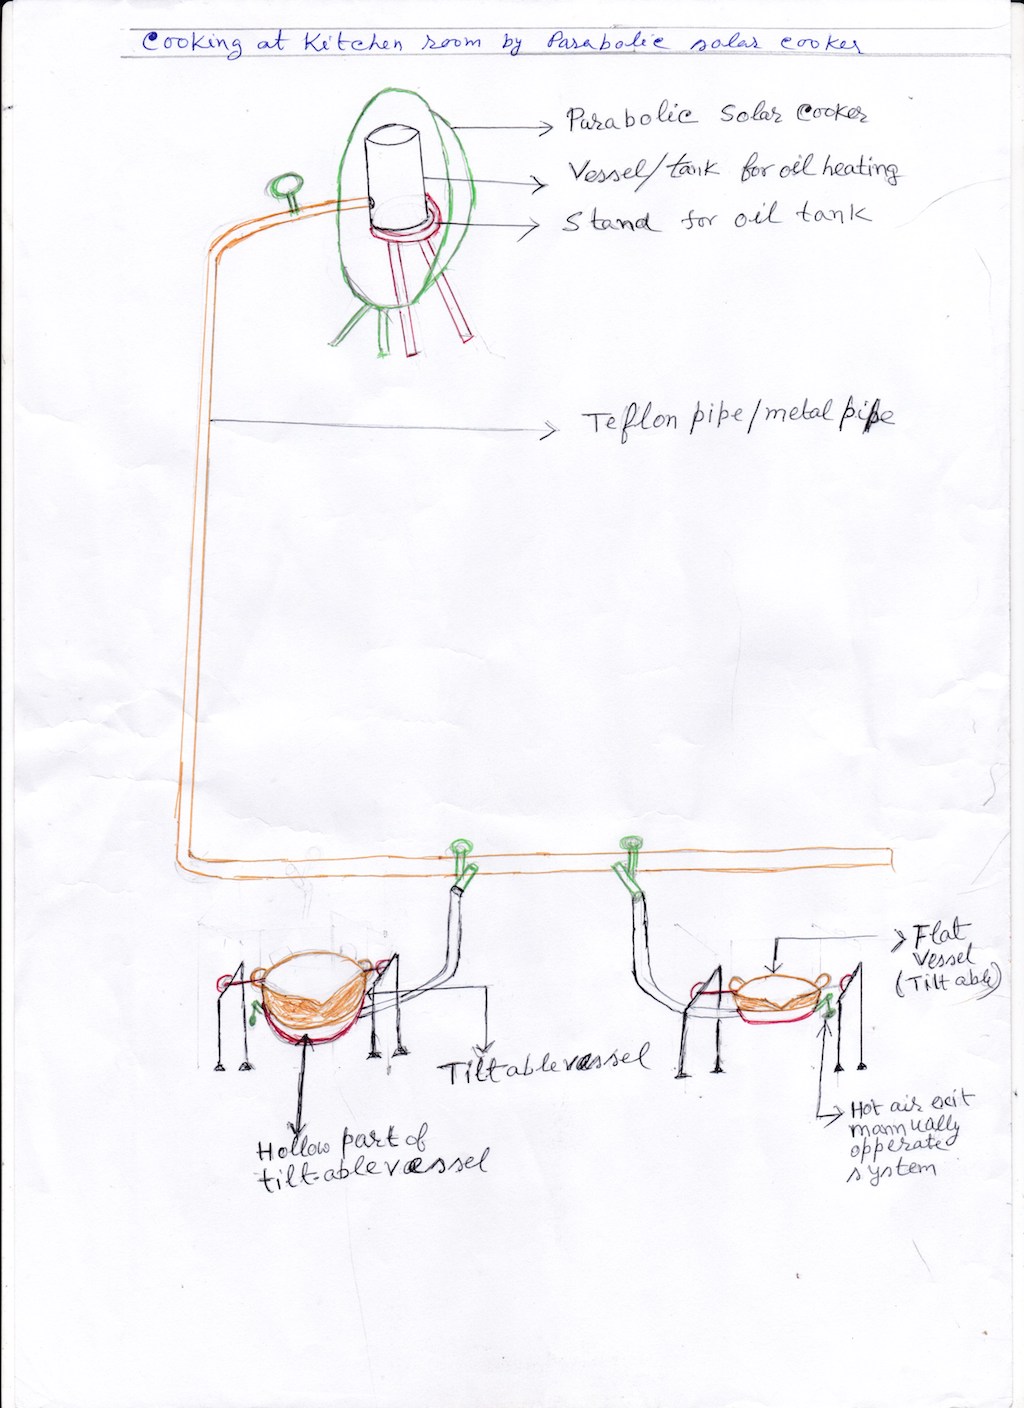 Cooking at Kitchen room by Parabolic solar cooker
Parabolic Solar Cooker
Vessel/tank for oil heating
Stand for oil tank
Teflon pipe/metal pipe
Flat
vessel
(Tiltable)
Tiltable vessel
Hot air exit
mannually
opperate
system
Hollow part of
tiltable vessel